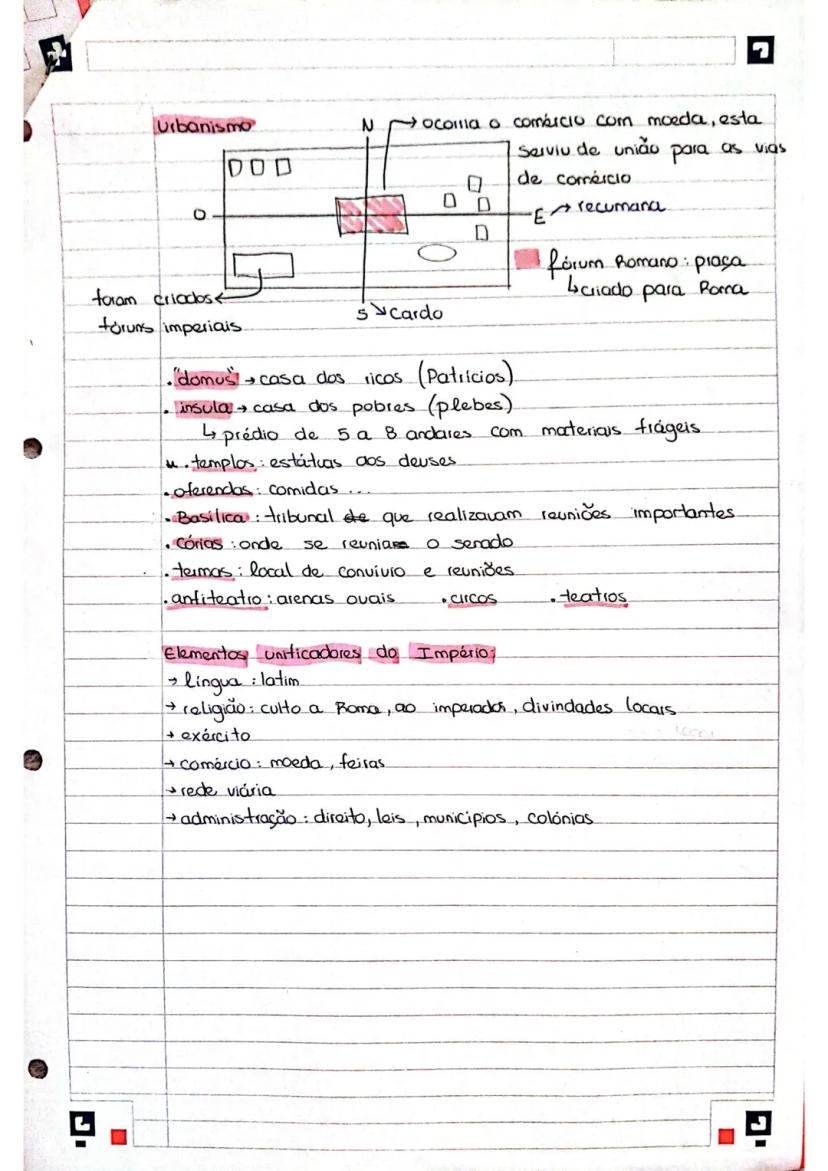 Urbanismo
N → ocorria o comércio com moeda, esta
serviu de união para as vias
de comércio
O
E → recumana
fórum Romano: praça
↳ criado para Roma
foram criados
fóruns imperiais
S ↘ Cardo
. "domus" → casa dos ricos (Patrícios)
. insula → casa dos pobres (plebes)
↳ prédio de 5 a 8 andares com materiais frágeis
. templos: estátuas aos deuses
. oferendas: comidas ...
. Basílica: tribunal de que realizavam reuniões importantes
. Córias: onde se reunia o senado
. termas: local de convivio e reuniões
. anfiteatro: arenas ovais . circos . teatros
Elementos unificadores do Império:
→ língua: latim
→ religião: culto a Roma, ao imperador, divindades locais
→ exército
→ comércio: moeda, feiras
→ rede viária
→ administração: direito, leis, municípios, colónias